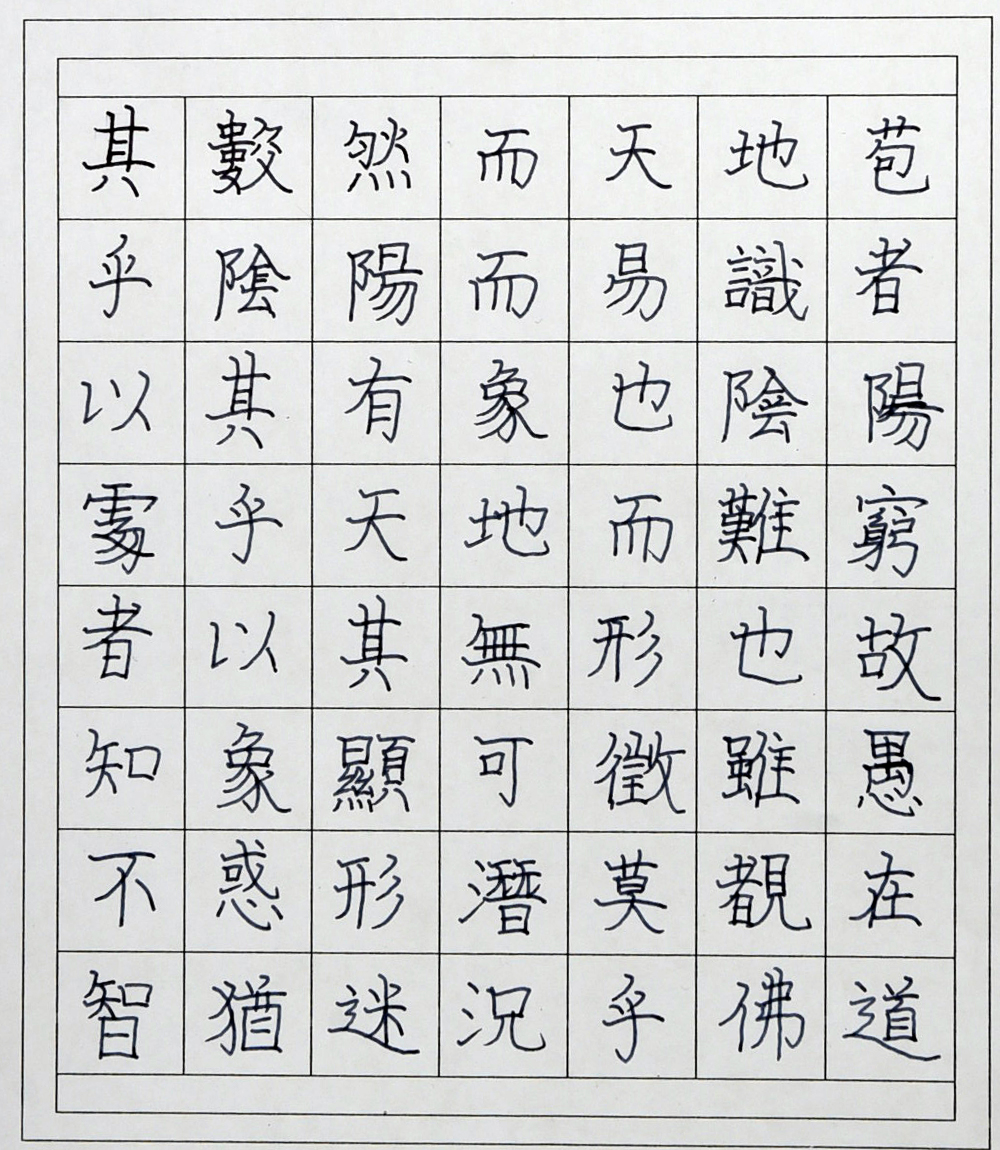 其數然而天地苞
乎陰陽而易識者
以其有象也陰陽
處乎天地而難窮
者以其無形也故
知象顯可徵雖愚
不惑形潛莫覩在
智猶迷況乎佛道